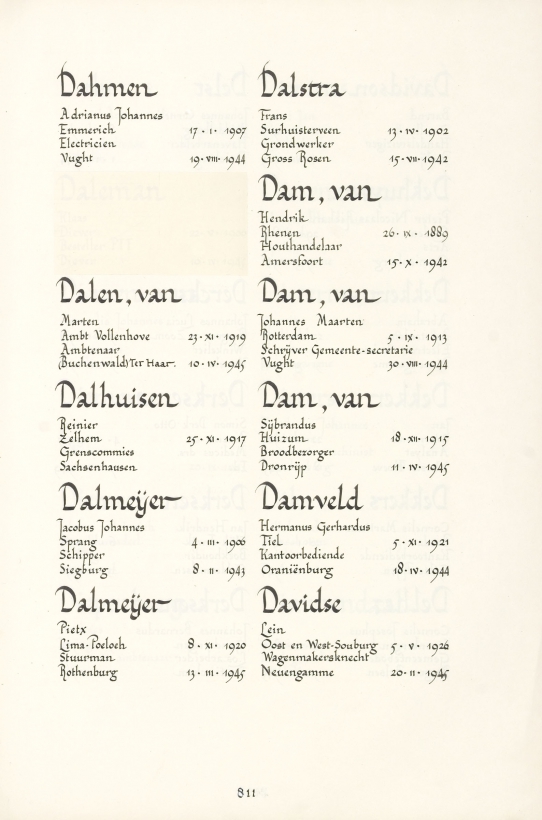 Dahmen
Adrianus Johannes
Emmerich 17 · I · 1907
Electricien
Vught 19 · VIII · 1944
Dalen, van
Marten
Ambt Vollenhove 23 · XI · 1919
Ambtenaar
(Buchenwald) Ter Haar. 10 · IV · 1945
Dalhuisen
Reinier
Zelhem 25 · XI · 1917
Grenscommies
Sachsenhausen
Dalmeÿer
Jacobus Johannes
Sprang 4 · III · 1906
Schipper
Siegburg 8 · II · 1943
Dalmeÿer
Pietx
Lima-Poeloch 8 · XI · 1920
Stuurman
Rothenburg 13 · III · 1945
Dalstra
Frans
Surhuisterveen 13 · IV · 1902
Grondwerker
Gross Rosen 15 · VII · 1942
Dam, van
Hendrik
Rhenen 26 · IX · 1889
Houthandelaar
Amersfoort 15 · X · 1942
Dam, van
Johannes Maarten
Rotterdam 5 · IX · 1913
Schrÿver Gemeente-secretarie
Vught 30 · VIII · 1944
Dam, van
Sÿbrandus
Huizum 18 · XII · 1915
Broodbezorger
Dronrÿp 11 · IV · 1945
Damveld
Hermanus Gerhardus
Tiel 5 · XI · 1921
Kantoorbediende
Oraniënburg 18 · IV · 1944
Davidse
Lein
Oost en West-Souburg 5 · V · 1926
Wagenmakersknecht
Neuengamme 20 · II · 1945
811